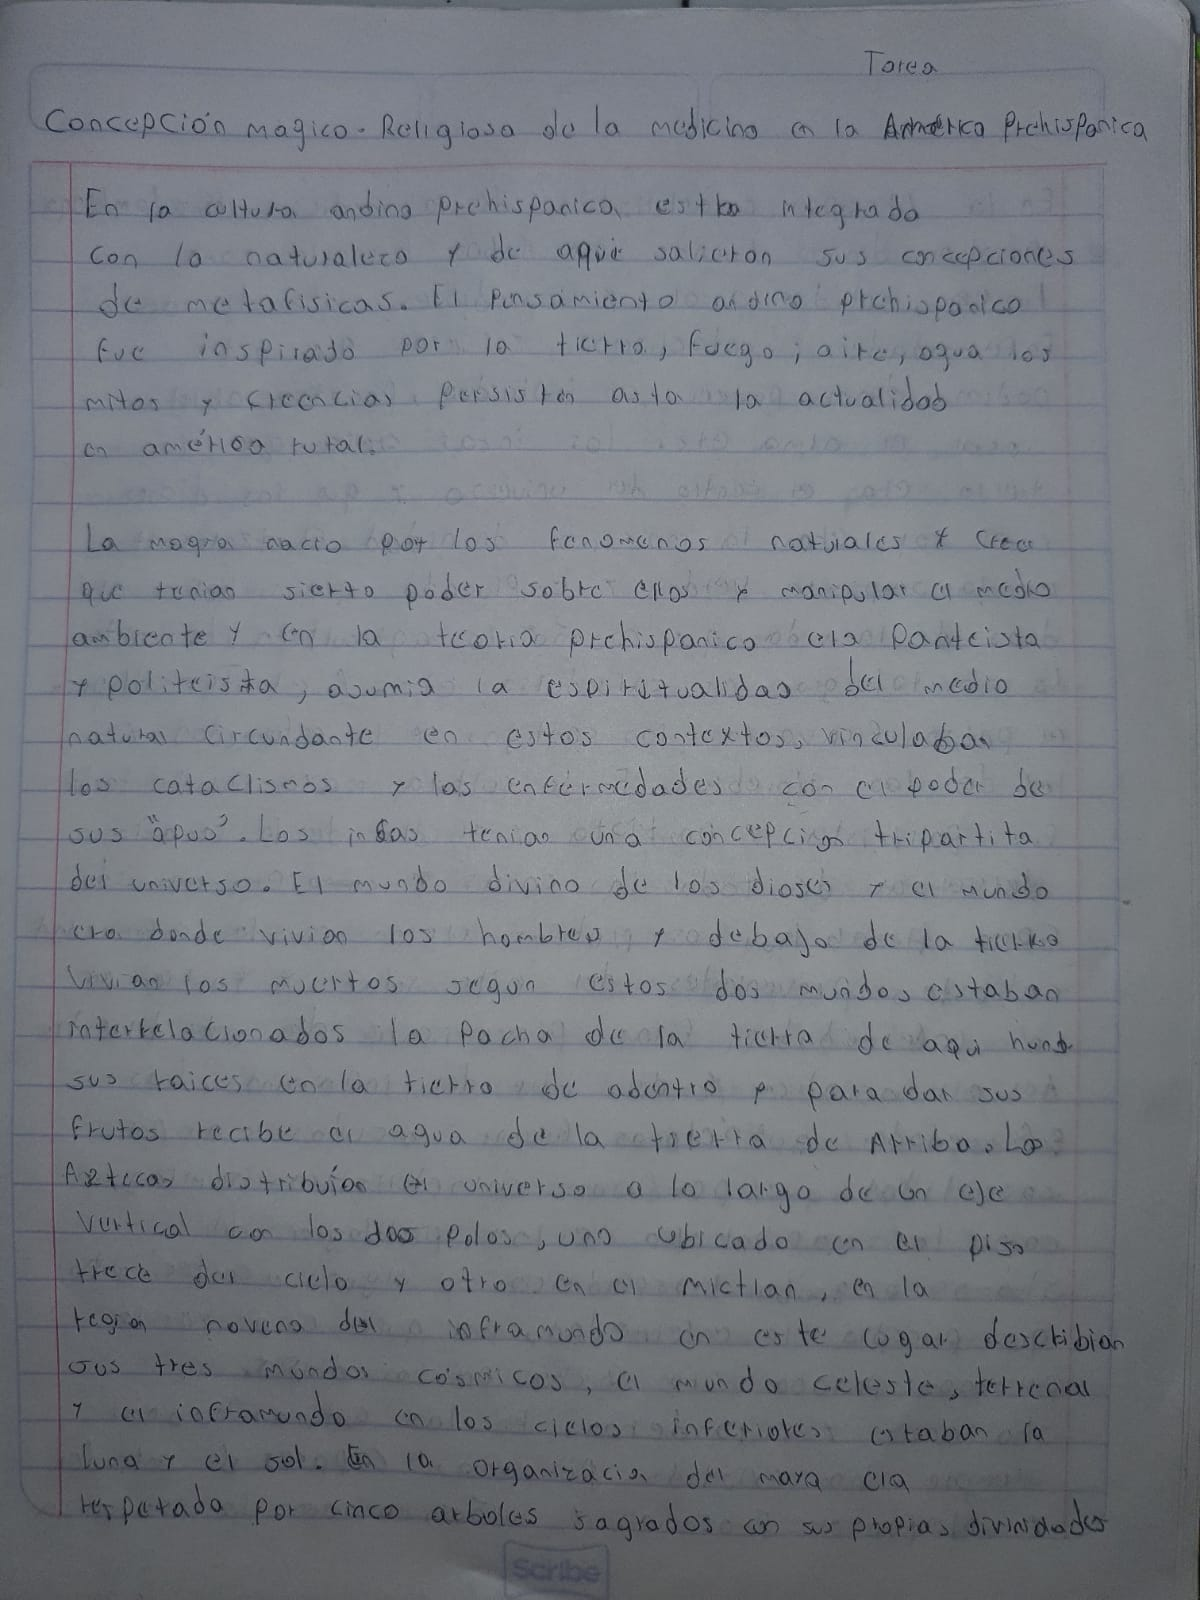 Tarea
Concepción Mágico-Religiosa de la medicina en la América Prehispanica
En la cultura andina prehispanica esta integrada
con la naturaleza y de aqui salieron sus concepciones
de metafisicas. El Pensamiento andino prehispanico
fue inspirado por la tierra, fuego, aire, agua los
mitos y creencias persisten asta la actualidad
en américa rural.
La magia nacio por los fenomenos naturales y creer
que tenian sierto poder sobre ellos y manipular el medio
ambiente y en la teoria prehispanica era Panteista
y politeista, asumia la espiritualidad del medio
natural circundante en estos contextos, vinculaban
los cataclismos y las enfermedades con el poder de
sus "apus". Los incas tenian una concepcion tripartita
del universo. El mundo divino de los dioses y el mundo
era donde vivian los hombres y debajo de la tierra
vivian los muertos segun estos dos mundos estaban
interrelacionados la Pacha de la tierra de aqui hund
sus raices en la tierra de adentro y para dar sus
frutos recibe el agua de la tierra de Arriba. Los
Aztecas distribuían el universo a lo largo de un eje
vertical con los dos Polos, uno ubicado en el piso
trece del cielo y otro en el Mictlan, en la
region novena del inframundo en este lugar describian
sus tres mundos cósmicos, el mundo celeste, terrenal
y el inframundo en los cielos inferiores estaban la
luna y el sol. En la organizacion del maya era
respetada por cinco arboles sagrados con sus propias divinidades
Scribe